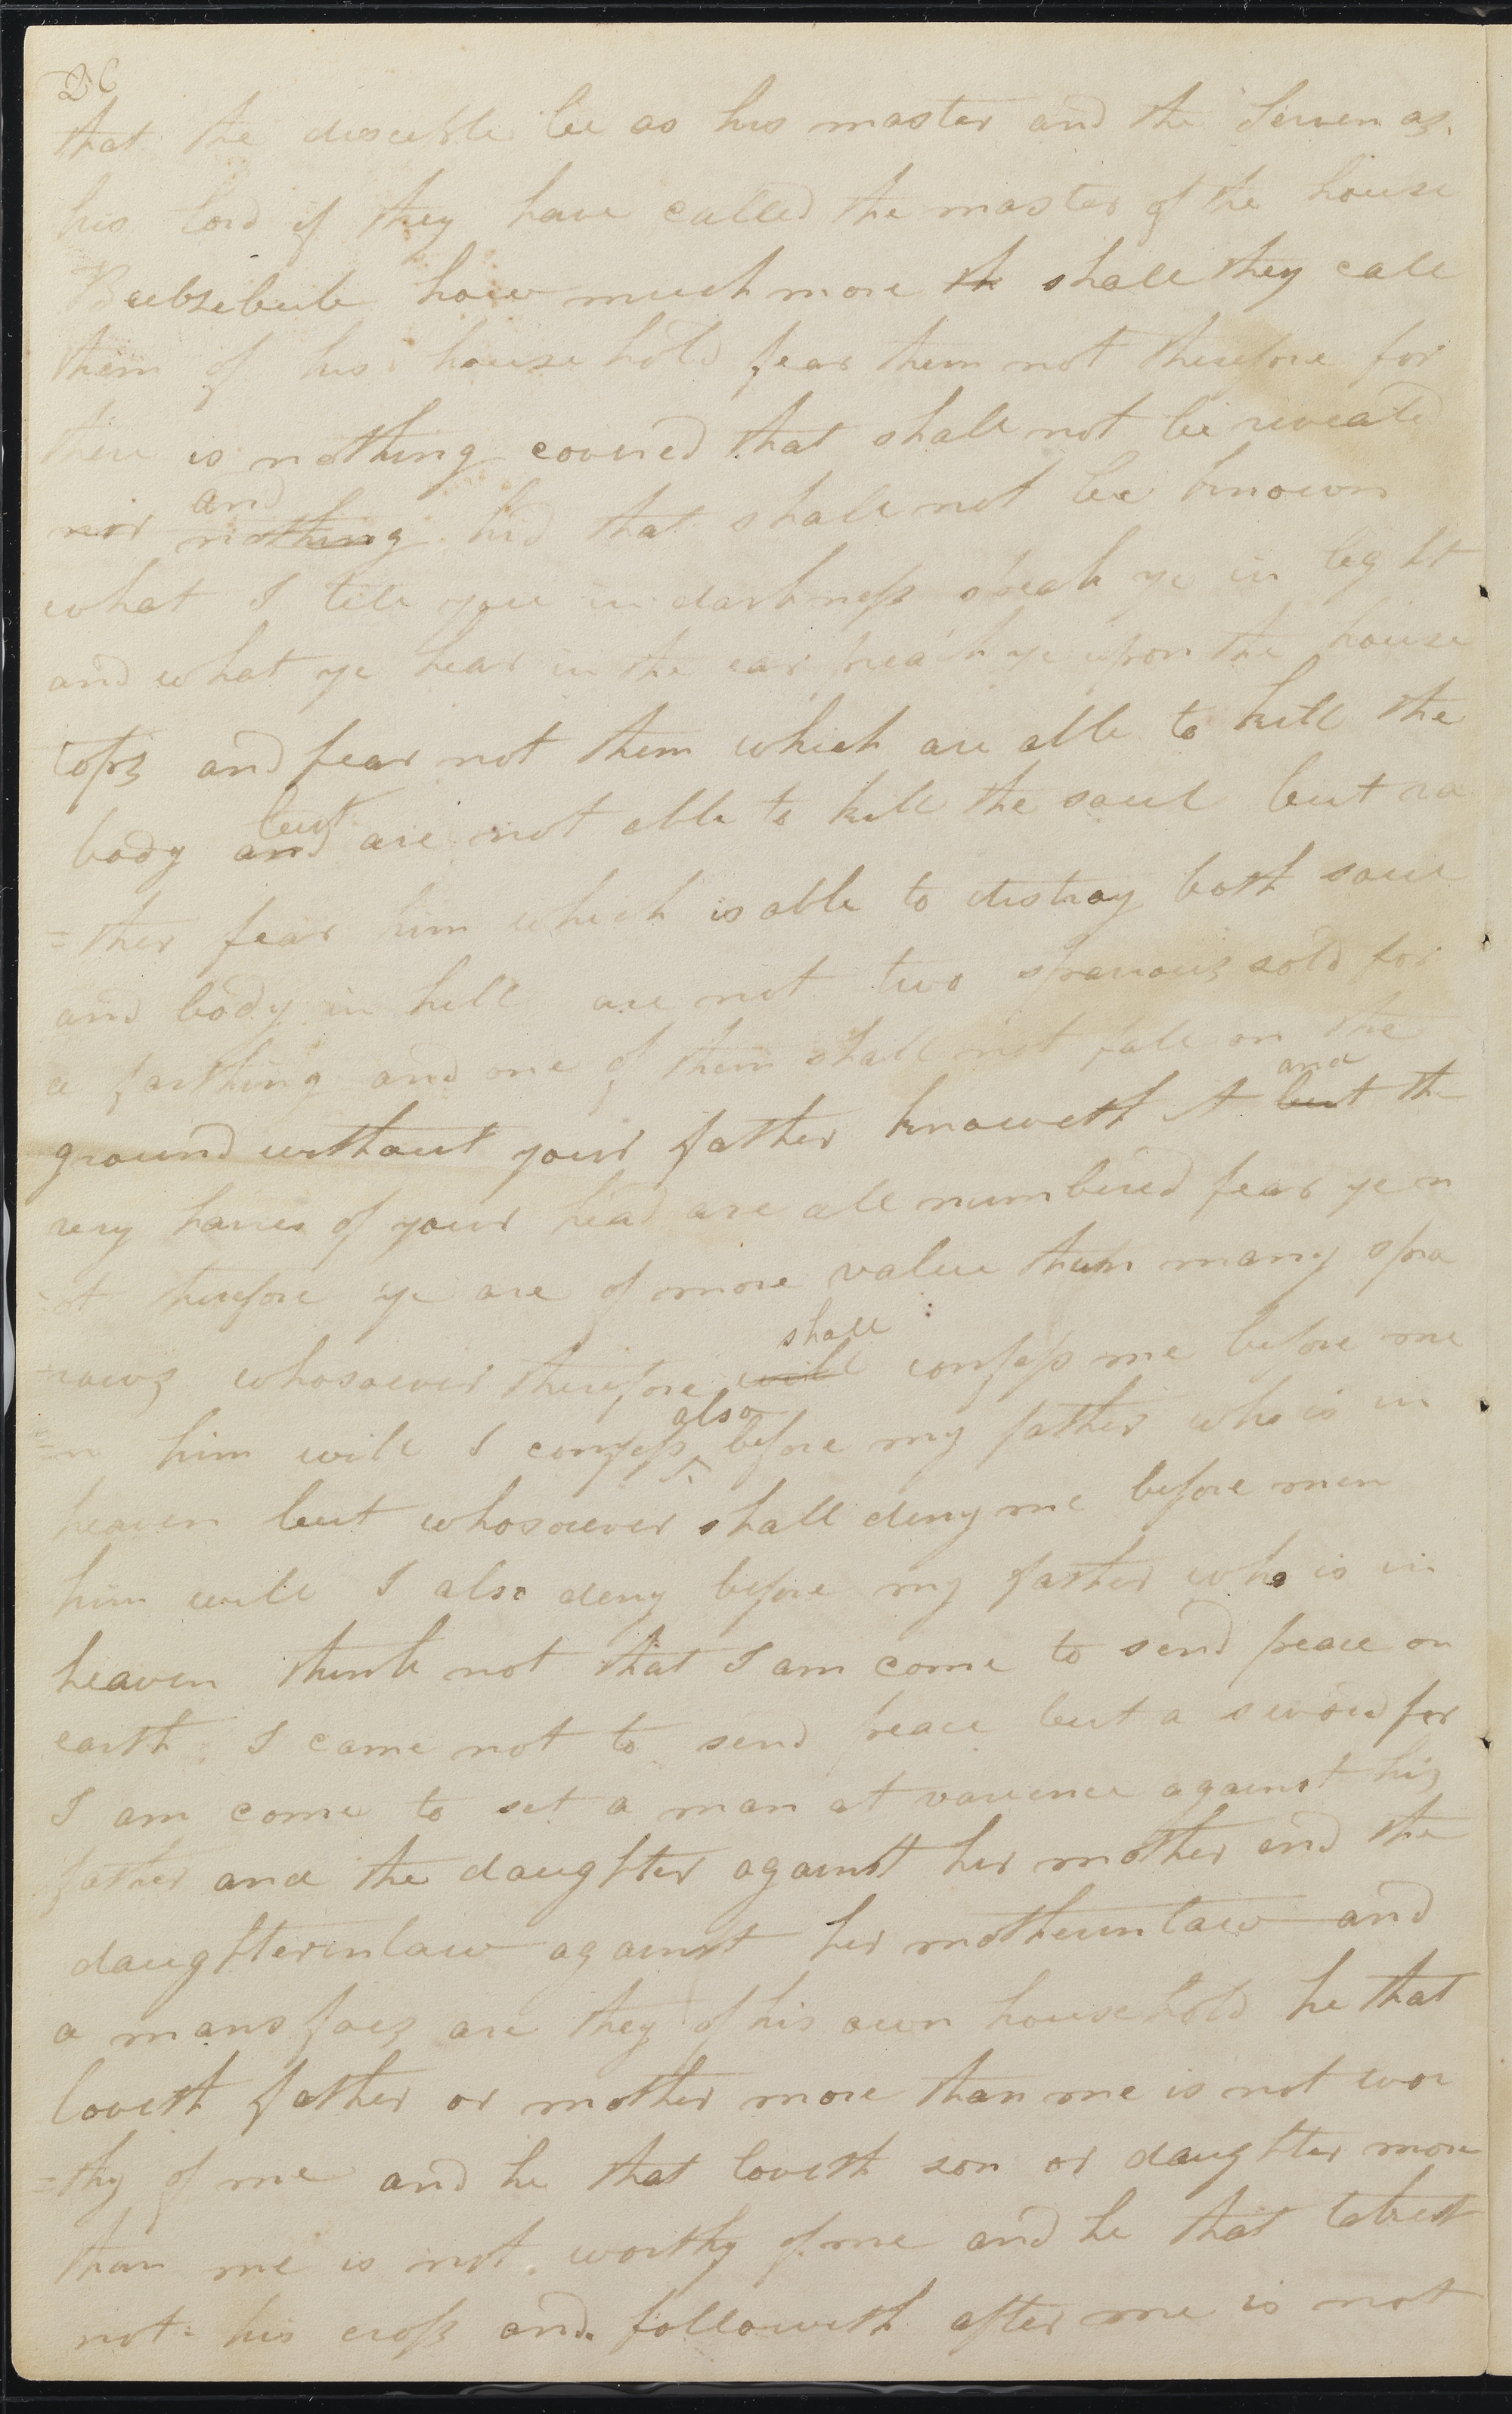 26
that the desceble be as his master and the Serven as
his lord if they have called the master of the house
Beebzebub how much more th shall they call
them of his house hold fear them not therefore for
there is nothing covered that shall not be reveald
and
nor nothing hid that shall not be known
what I tell you in darkness speak ye in light
and what ye hear in the ear preach ye upon the house
tops and fear not them which are able to kill the
but
body and are not able to kill the soul but ra
=ther fear him which is able to distroy both soul
and body in hell are not two sparrows sold for
a farthing and one of them shall not fall on the
and
ground without your father knoweth it but the
very haires of your head are all numbered fear ye n
=ot therefore ye are of more value than many spa
shall
=rows whosoever therefore will confess me before me
also
=n him will I confess before my father who is in
heaven but whosoever shall deny me before men
him will I also deny before my father who is in
heaven think not that I am come to send peace on
earth I came not to send peace but a sword for
I am come to set a man at varience against his
father and the daughter against her mother and the
daughterinlaw against her motherinlaw and
a mans foes are they of his own household he that
loveth father or mother more than me is not wor
=thy of me and he that loveth son or daughter more
than me is not worthy of me and he that taketh
not his cross and followeth after me is not